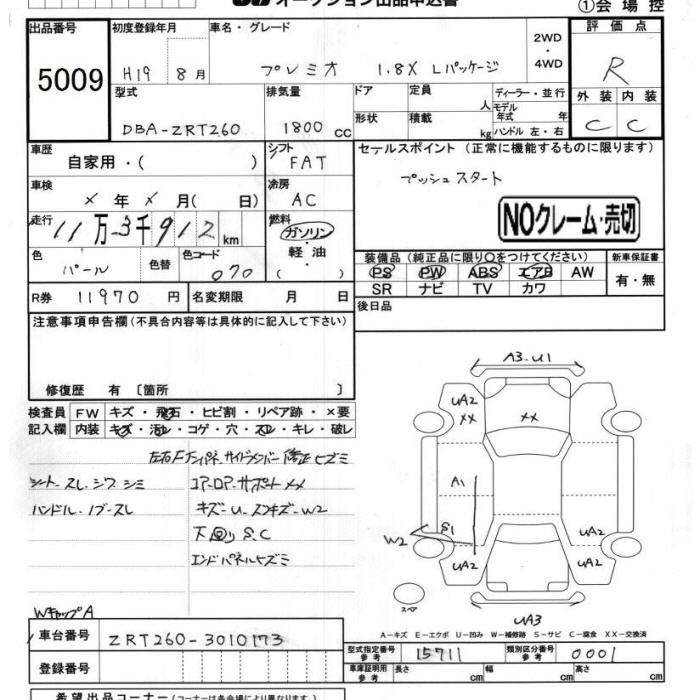 オークション出品申込書
①会場控
出品番号 初度登録年月 車名・グレード 2WD・4WD 評価点
5009 H19 8月 プレミオ 1.8X Lパッケージ R
型式 排気量 ドア 定員 人 ディーラー・並行 外装 内装
DBA-ZRT260 1800cc 形状 積載 kg モデル年式 年 ハンドル 左・右 C C
車歴 自家用・( ) シフト FAT セールスポイント (正常に機能するものに限ります)
車検 ×年×月( 日) 冷房 AC プッシュスタート
走行 11万3千912km 燃料 ガソリン・軽油・( ) NOクレーム・売切
色 パール 色替 色コード 070 装備品 (純正品に限り○をつけてください) 新車保証書
PS PW ABS エアB AW 有・無
SR ナビ TV カワ
R券 11970円 名変期限 月 日 後日品
注意事項申告欄 (不具合内容等は具体的に記入して下さい)
修復歴 有 〔箇所 〕
検査員 FW キズ・飛石・ヒビ割・リペア跡・×要
記入欄 内装 キズ・汚れ・コゲ・穴・スレ・キレ・破レ
左右Fインパネ・サイドメンバー修正ヒズミ
シート スレ・シワ シミ コアロアサポート××
ハンドル・ノブ・スレ キズ・U・スリキズ・W2
下回りS.C
エンドパネルヒズミ
WキャップA
A3-U1
UA2
××
××
A1
S1
W2
UA2
UA2
UA2
UA2
UA3
スペア
A-キズ E-エクボ U-凹み W-補修跡 S-サビ C-腐食 XX-交換済
車台番号 ZRT260-3010173
型式指定番号 参考 15711 類別区分番号 参考 0001
登録番号 車庫証明用 参考 長さ cm 幅 cm 高さ cm
希望出品コーナー (コーナー名は各会場により異なります。)